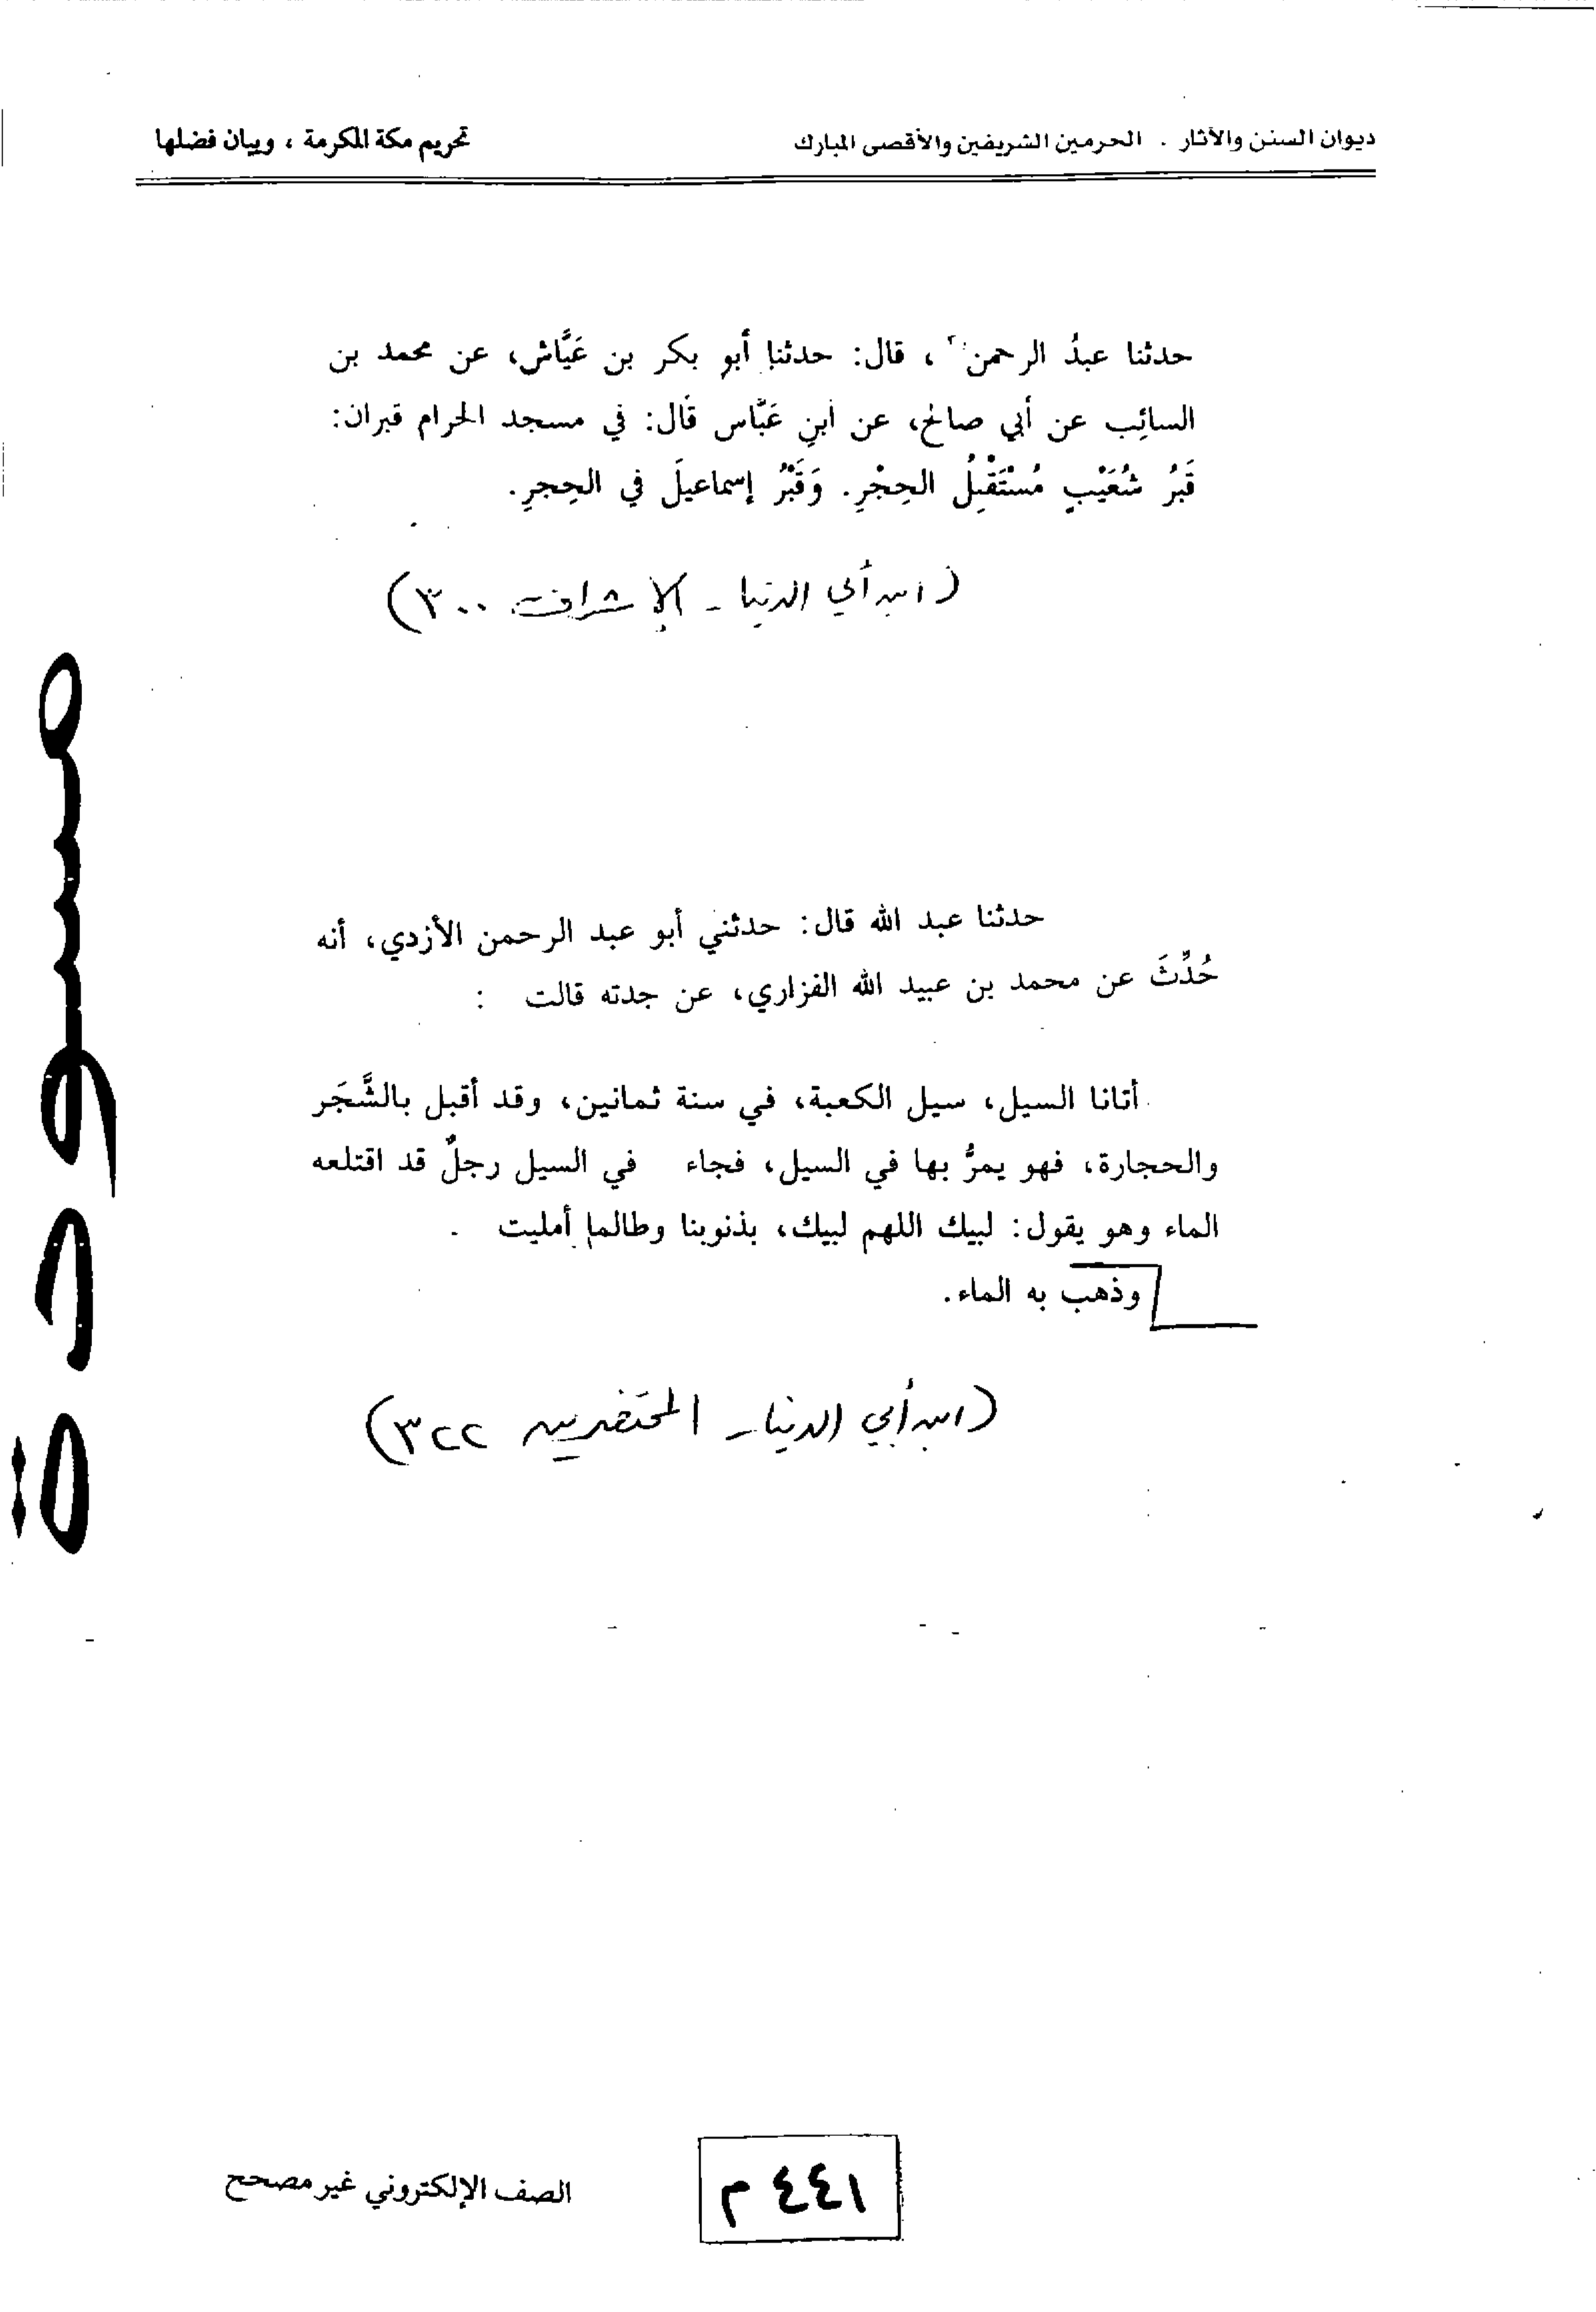 ديوان السنن والآثار . الحرمين الشريفين والأقصى المبارك
تحريم مكة المكرمة ، وبيان فضلها
حدثنا عبدُ الرحمن ، قال: حدثنا أبو بكر بن عَيَّاش، عن محمد بن
السائِب عن أبي صالح، عن ابنِ عَبَّاس قَال: في مسجد الحرام قبران:
قَبرُ شُعَيْبٍ مُسْتَقْبِلُ الحِجْرِ. وَقَبْرُ إسماعيلَ في الحِجرِ.
(ابن أبي الدنيا - الإشراف ٣٠٠)
حدثنا عبد الله قال: حدثني أبو عبد الرحمن الأزدي، أنه
حُدِّثَ عن محمد بن عبيد الله الفزاري، عن جدته قالت :
أتانا السيل، سيل الكعبة، في سنة ثمانين، وقد أقبل بالشَّجَر
والحجارة، فهو يمرُّ بها في السيل، فجاء في السيل رجلٌ قد اقتلعه
الماء وهو يقول: لبيك اللهم لبيك، بذنوبنا وطالما أمليت .
وذهب به الماء.
(ابن أبي الدنيا - المحتضرين ٣٢٢)
مسودة
٤٤١ م
الصف الإلكتروني غير مصحح